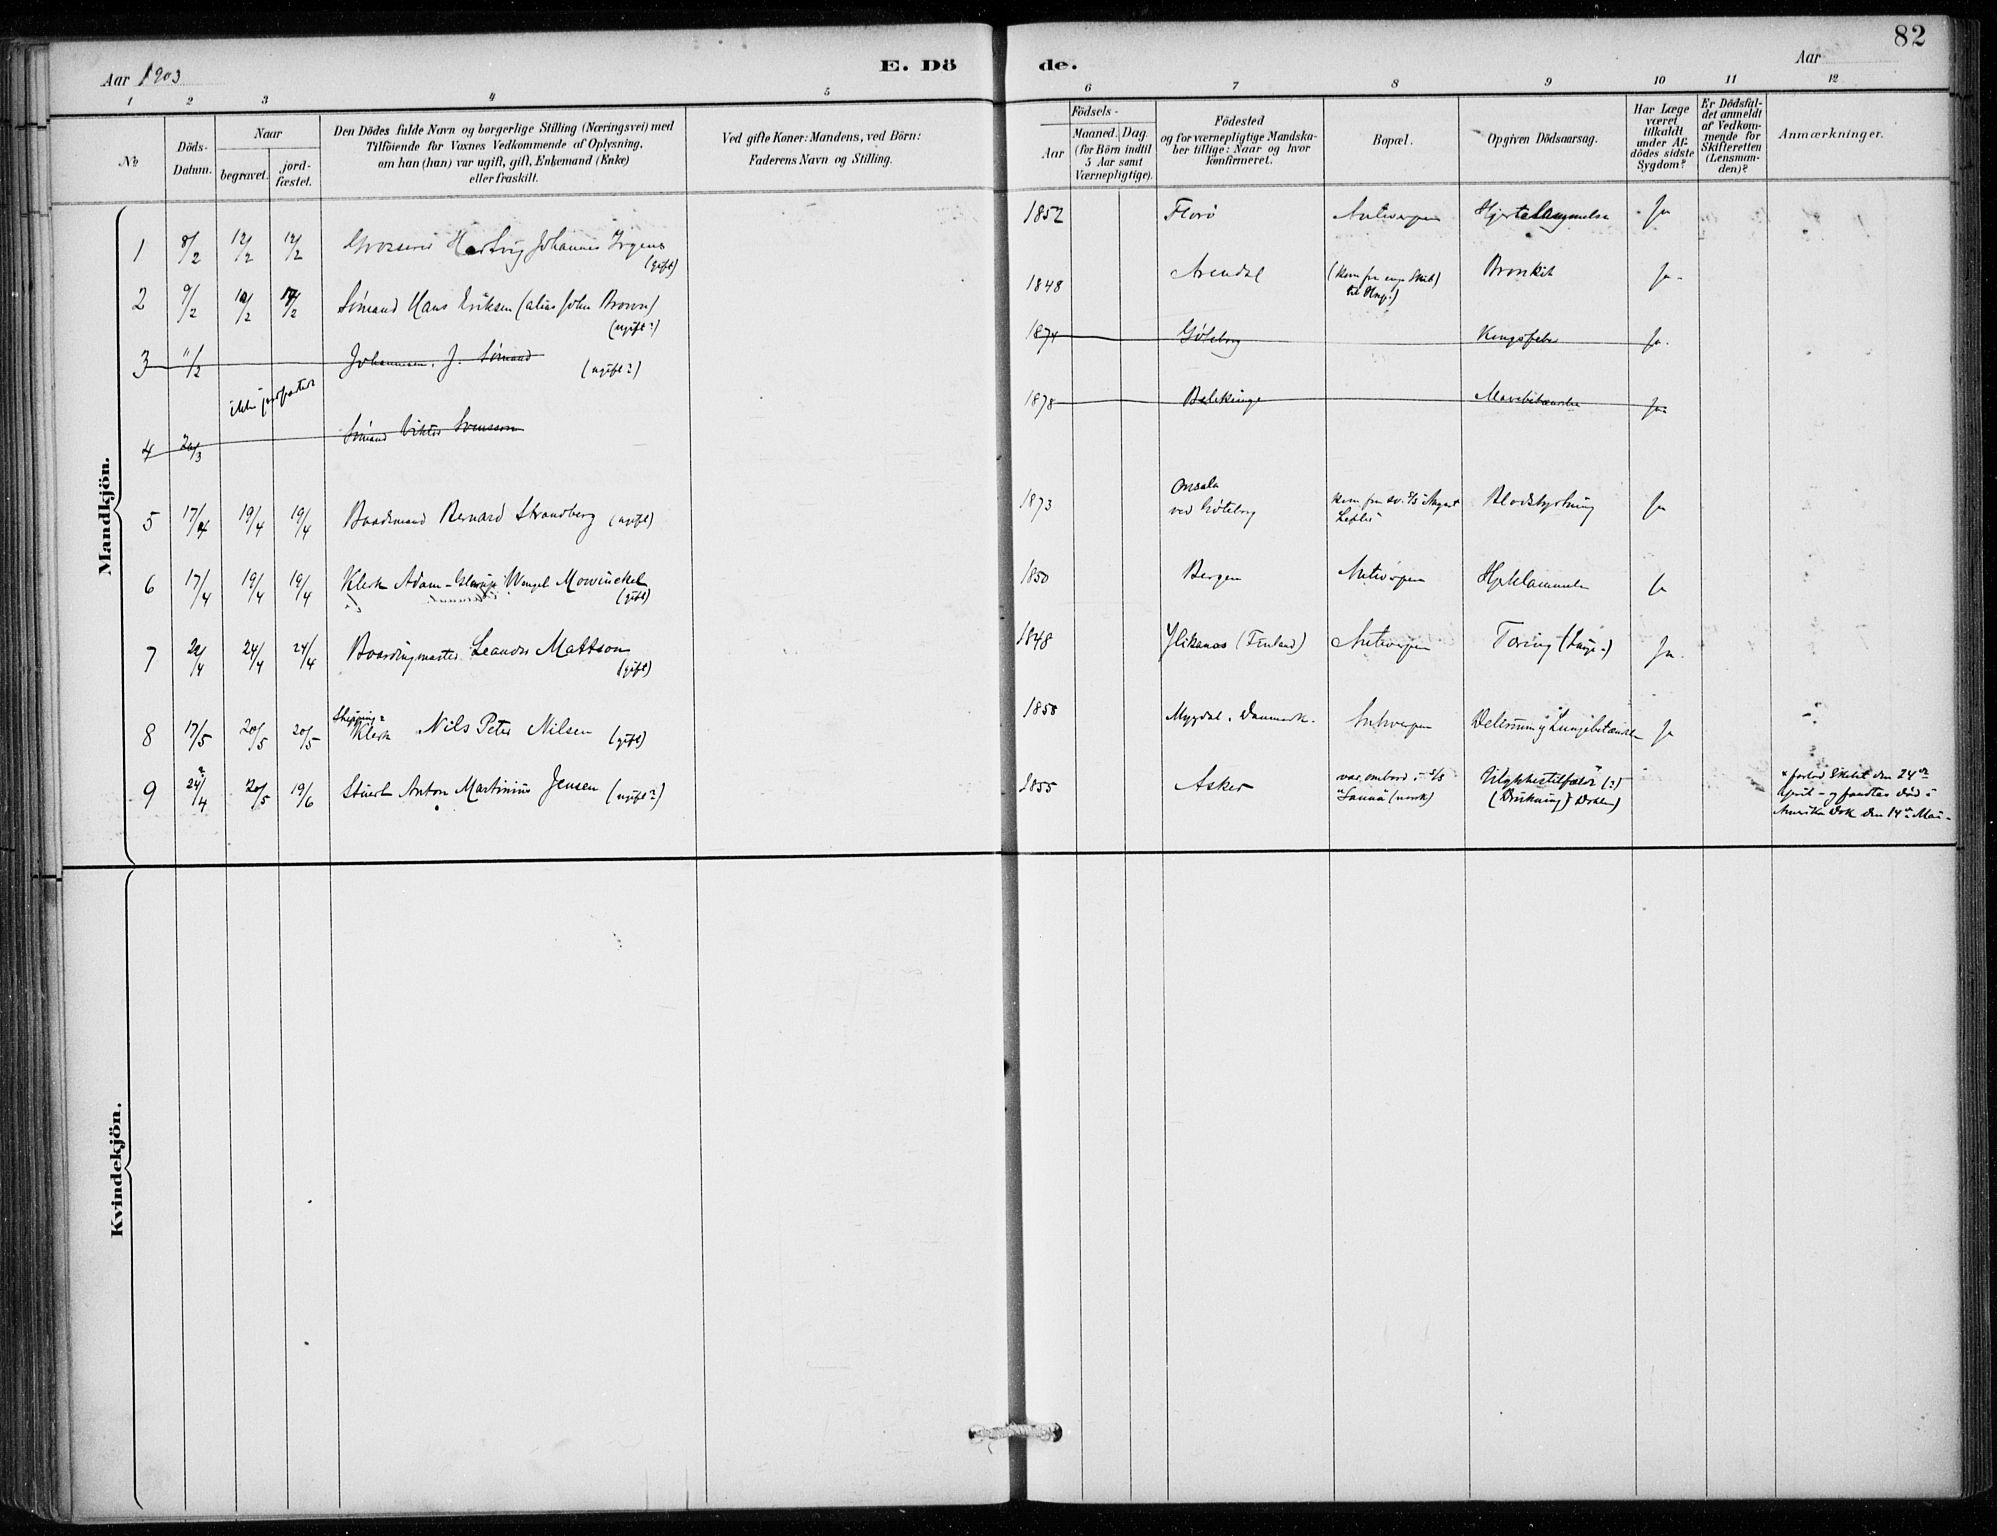 82
Aar 1903
E. Dö
de.
Aar
1 2 3 4 5 6 7 8 9 10 11 12
№
Döds-
Datum.
Naar
begravet.
jord-
fæstet.
Den Dödes fulde Navn og borgerlige Stilling (Næringsvei) med
Tilföiende for Voxnes Vedkommende af Oplysning,
om han (hun) var ugift, gift, Enkemand (Enke)
eller fraskilt.
Ved gifte Koner: Mandens, ved Börn:
Faderens Navn og Stilling.
Födsels-
Aar
Maaned. Dag.
(for Börn indtil
5 Aar samt
Værnepligtige).
Födested
og for værnepligtige Mandska-
ber tillige: Naar og hvor
konfirmeret.
Bopæl.
Opgiven Dödsaarsag.
Har Læge
været
tilkaldt
under Af-
dödes sidste
Sygdom?
Er Dödsfal-
det anmeldt
af Vedkom-
mende for
Skifteretten
(Lensman-
den)?
Anmærkninger.
Mandkjön.
1 8/2 12/2 12/2 Grosserer Hartvig Johannes Irgens (gift) 1852 Florö Antwerpen Hjertelammelse Ja
2 9/2 Sömand Hans Eriksen (alias John Brown) (ugift?) 1848 Arendal (kom fra eng. Skib) Bronkit Ja
3 11/2 Johannsen, J. Sömand (ugift?) 1874 Göteborg Ja
ikke jordfæstet
4 Sömand Viktor Svensson 1878 Blekinge Ja
5 17/4 19/4 19/4 Baadsmand Bernard Strandberg (ugift) 1873 Onsala ved Göteborg kom fra sv. S/S August Leffler Blodstyrtning Ja
6 17/4 19/4 19/4 Klerk Adam Wengel Mowinckel (gift) 1850 Bergen Antwerpen Ja
7 24/4 24/4 Boardingmaster Leander Mattson (gift) 1848 (Finland) Antwerpen Tæring Ja
8 17/5 20/5 20/5 Shipping-Klerk Nils Peter Nilsen (gift) 1858 Mygdal, Danmark. Antwerpen Delirium og Lungebetændelse Ja
9 24/4 20/5 19/6 Stuert Anton Martinius Jensen (ugift?) 1855 Asker var ombord i S/S (norsk) Ulykkestilfælde (?) (Drukning i Dokken) × forlod Skibet den 24de April - og fandtes död i Amerika Dok den 14de Mai -
Kvindekjön.